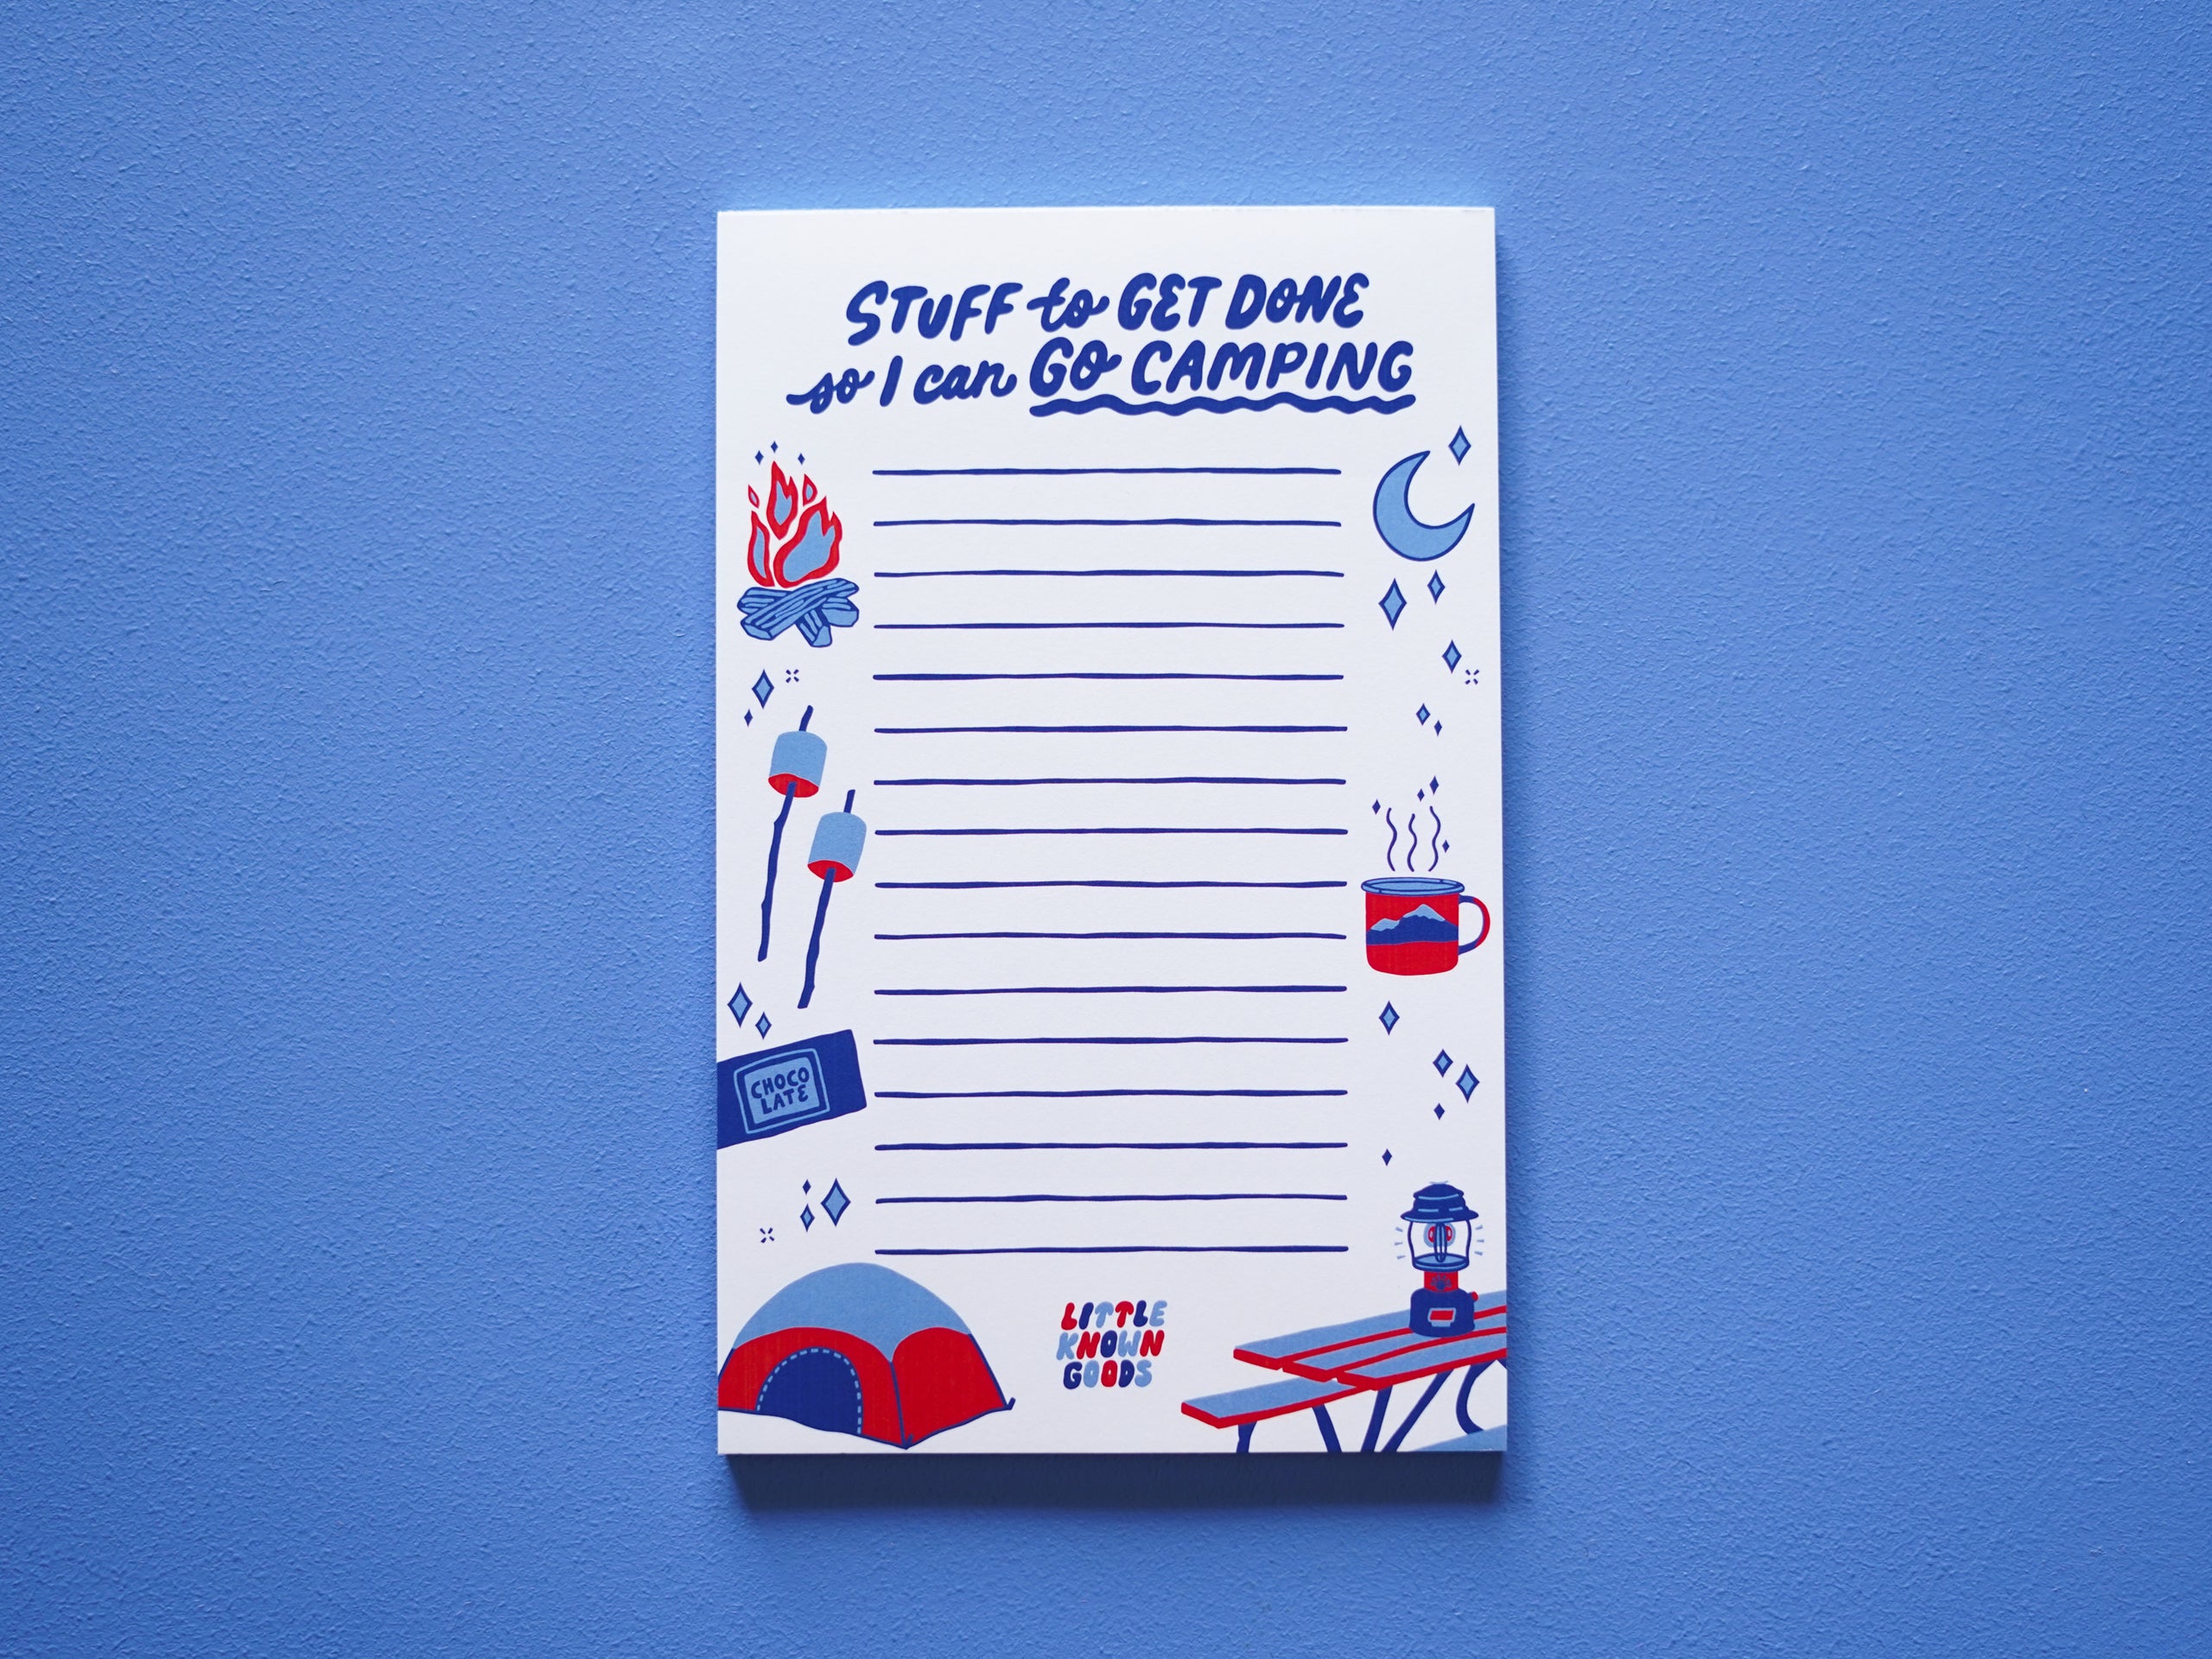 STUFF to GET DONE
so I can GO CAMPING
CHOCO
LATE
LITTLE
KNOWN
GOODS